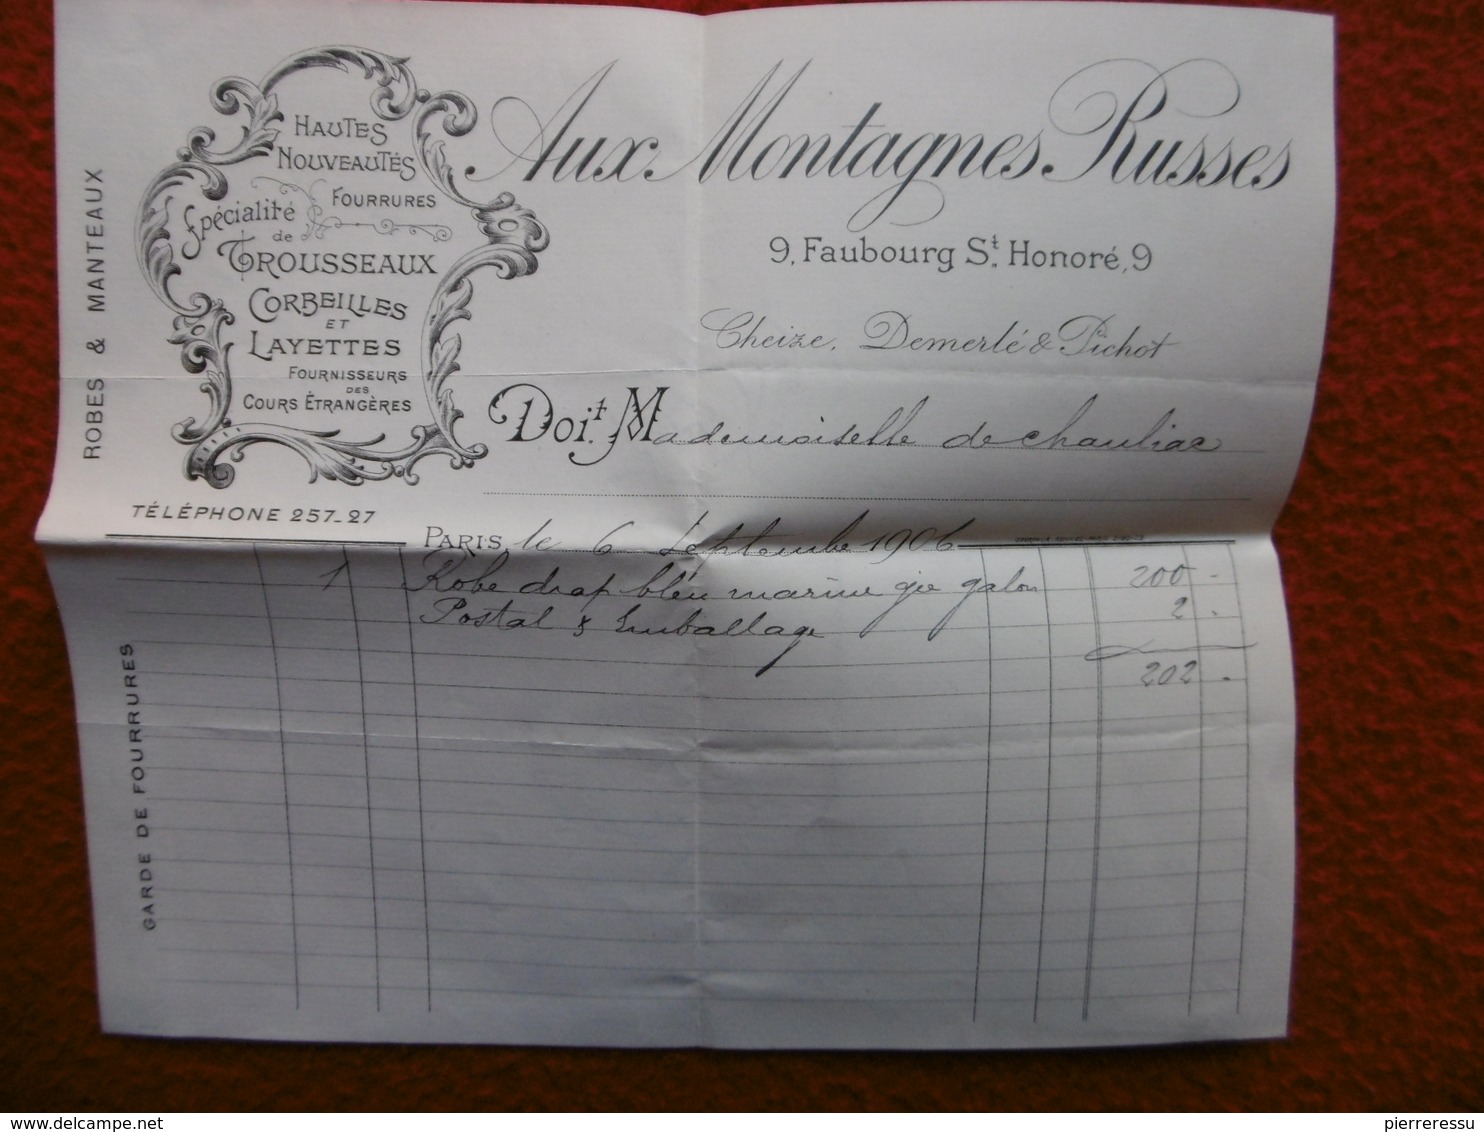 ROBES & MANTEAUX
HAUTES
NOUVEAUTÉS
FOURRURES
Spécialité
de
TROUSSEAUX
CORBEILLES
ET
LAYETTES
FOURNISSEURS
DES
COURS ÉTRANGÈRES
Aux Montagnes Russes
9, Faubourg St. Honoré, 9
Cheize, Demerlé & Pichot
Doit Mademoiselle de Chauliac
TÉLÉPHONE 257-27
PARIS, le 6 Septembre 1906
1 Robe drap bleu marine galon 200 -
Postal & Emballage 2 -
202 -
GARDE DE FOURRURES
delcampe.net
pierreressu